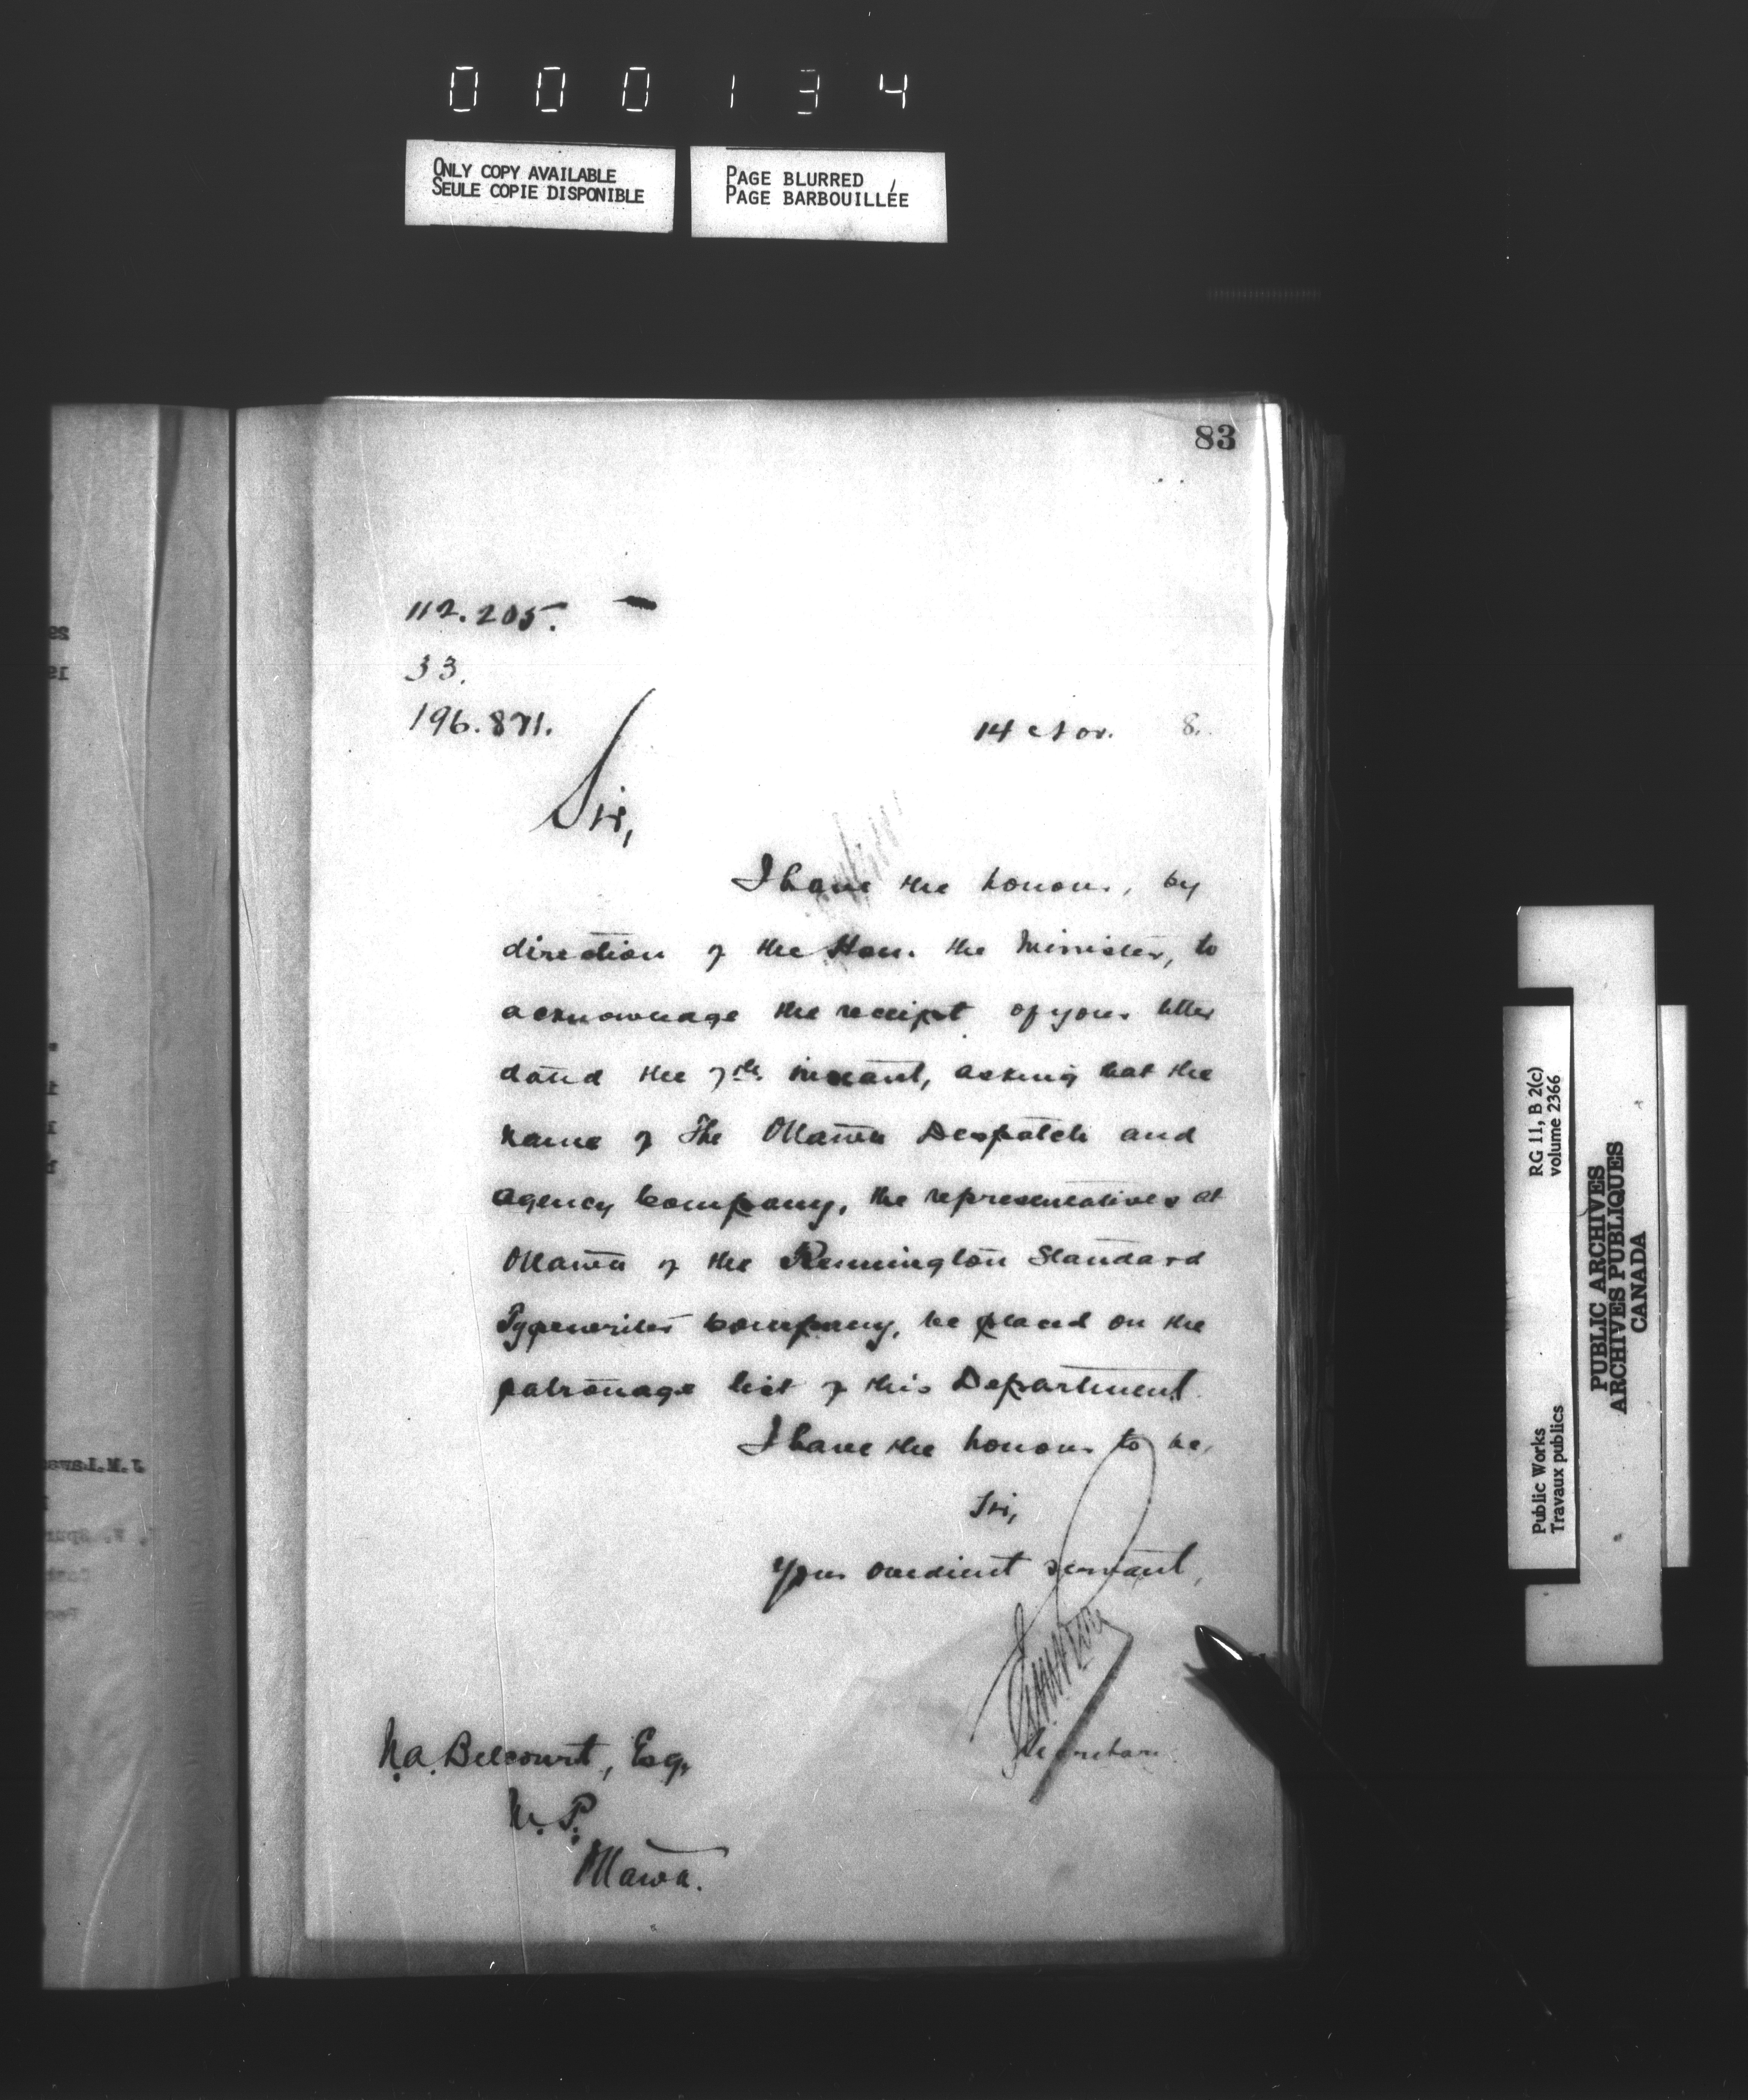 000134
ONLY COPY AVAILABLE
SEULE COPIE DISPONIBLE
PAGE BLURRED
PAGE BARBOUILLÉE
83
112.205.
33.
196.871.
14 Nov. 8.
Sir,
I have the honour, by
direction of the Hon. the Minister, to
acknowledge the receipt of your letter
dated the 7th instant, asking that the
name of The Ottawa Despatch and
Agency Company, the representatives at
Ottawa of the Remington Standard
Typewriter Company, be placed on the
patronage list of this Department.
I have the honour to be,
Sir,
Your obedient servant,
Secretary.
N.A. Belcourt, Esq,
M.P.
Ottawa.
RG 11, B 2(c)
volume 2366
Public Works
Travaux publics
PUBLIC ARCHIVES
ARCHIVES PUBLIQUES
CANADA